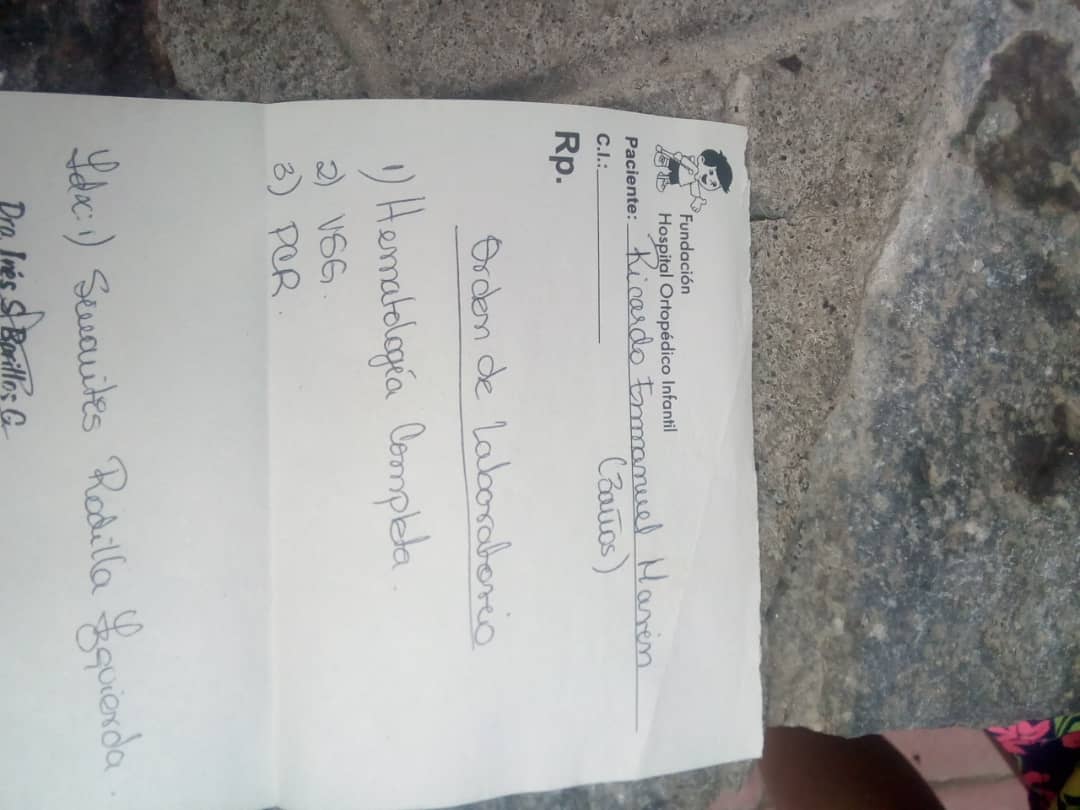 Fundación
Hospital Ortopédico Infantil
Paciente: Ricardo Emmanuel Marin
C.I.: (3años)
Rp.
Orden de Laboratorio
1) Hematología Completa.
2) VSG.
3) PCR.
Idx: 1) Sinovitis Rodilla Izquierda.
Dra. Inés S. Barillas G.